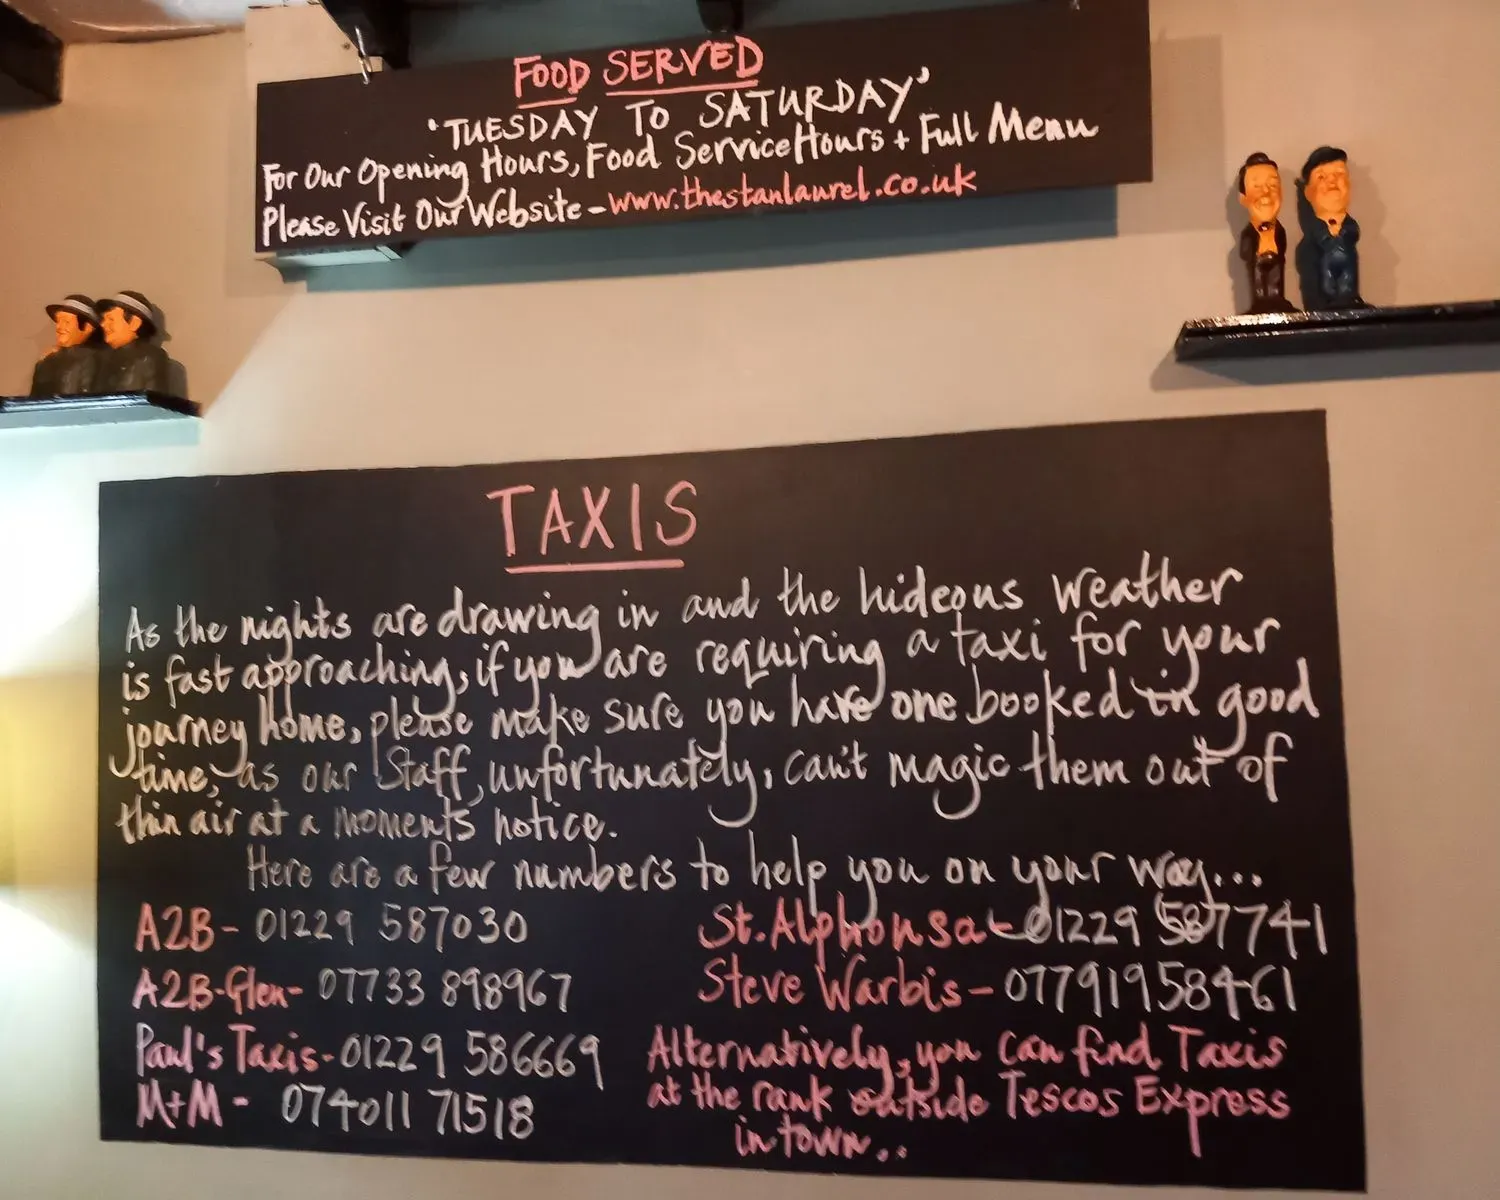 FOOD SERVED
'TUESDAY TO SATURDAY'
For Our Opening Hours, Food Service Hours + Full Menu
Please Visit Our Website - www.thestanlaurel.co.uk
TAXIS
As the nights are drawing in and the hideous weather
is fast approaching, if you are requiring a taxi for your
journey home, please make sure you have one booked in good
time, as our Staff, unfortunately, can't magic them out of
thin air at a moments notice.
Here are a few numbers to help you on your way...
A2B - 01229 587030
A2B-Glen - 07733 898967
Paul's Taxis - 01229 586669
M+M - 074011 71518
St. Alphonsa - 01229 587741
Steve Warbis - 07791958461
Alternatively, you can find Taxis
at the rank outside Tescos Express
in town...